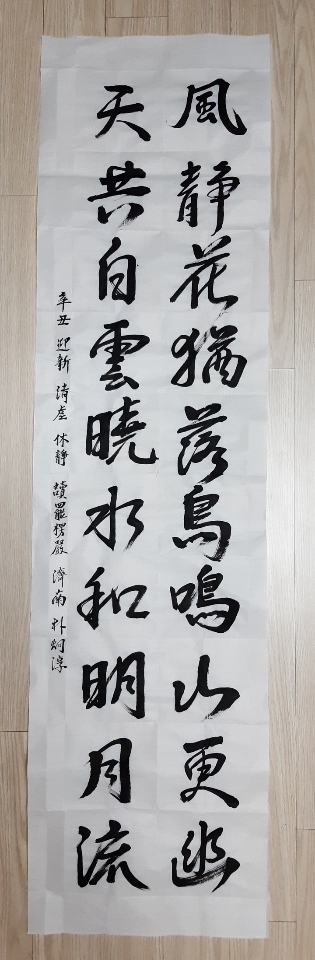 風靜花猶落鳥鳴山更幽
天共白雲曉水和明月流
辛丑 迎新 清虛 休静 讀罷楞嚴 濟南 朴炯淳